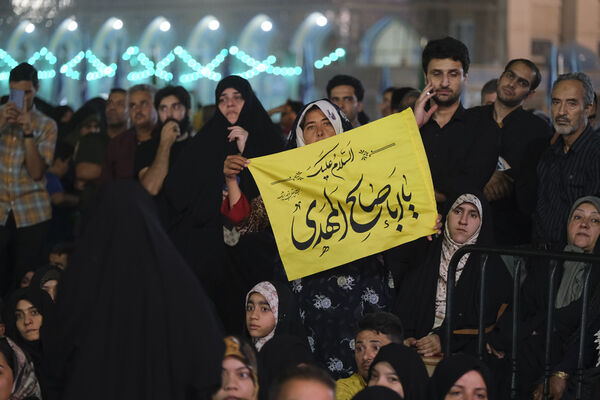 السلام علیک
یا اباصالح المهدی